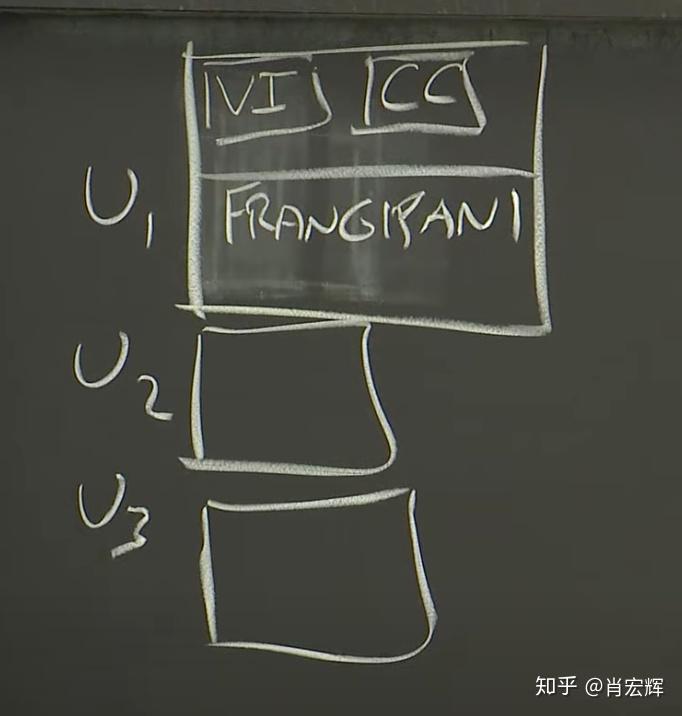 VI CC
U1
FRANGIPANI
U2
U3
知乎 @肖宏辉